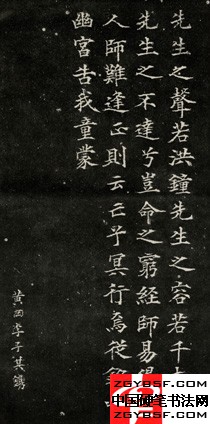 先生之聲若洪鐘先生之容若千
先生之不達兮豈命之窮經師易得
人師難逢正則云亡兮冥行焉從
幽宮告我童蒙
李子其鐫
ZGYBSF.COM
中国硬笔书法网
ZGYBSF.COM